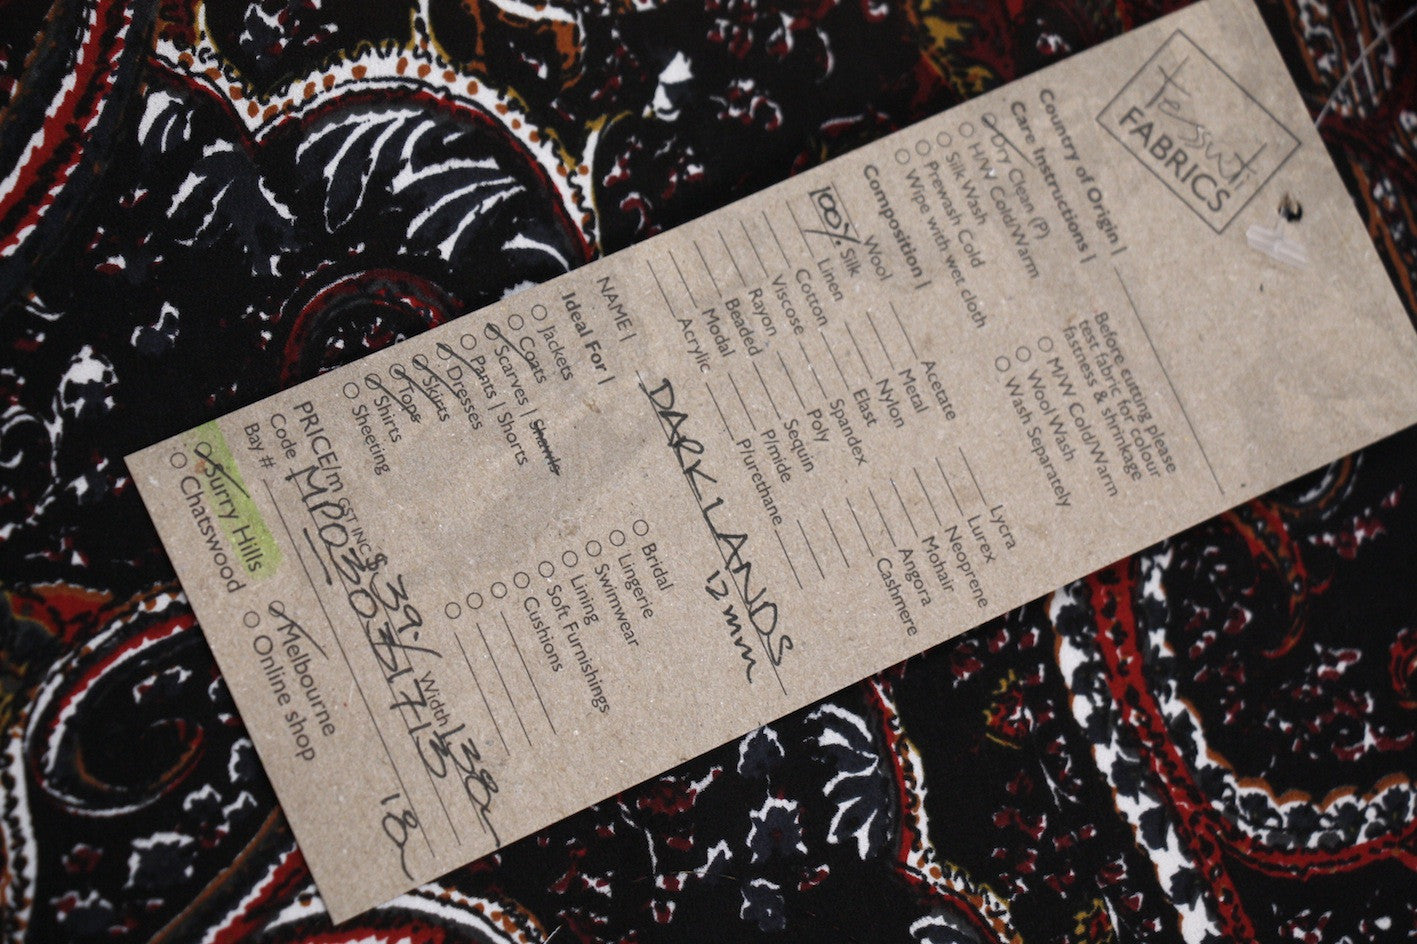 Tessuti
FABRICS
Country of Origin |
Care Instructions |
Dry Clean (P)
H/W Cold/Warm
Silk Wash
Prewash Cold
Wipe with wet cloth
Before cutting please
test fabric for colour
fastness & shrinkage
M/W Cold/Warm
Wool Wash
Wash Separately
Composition |
Wool
100% Silk
Linen
Cotton
Viscose
Rayon
Beaded
Modal
Acrylic
Acetate
Metal
Nylon
Elast
Spandex
Poly
Sequin
P/mide
P/urethane
Lycra
Lurex
Neoprene
Mohair
Angora
Cashmere
NAME | DARKLANDS
12mm
Ideal For |
Jackets
Coats
Scarves | Shawls
Pants | Shorts
Dresses
Skirts
Tops
Shirts
Sheeting
Bridal
Lingerie
Swimwear
Lining
Soft Furnishings
Cushions
PRICE/m GST INC $39.- Width 138
Code MP030331713
Bay # 18
Surry Hills
Chatswood
Melbourne
Online shop